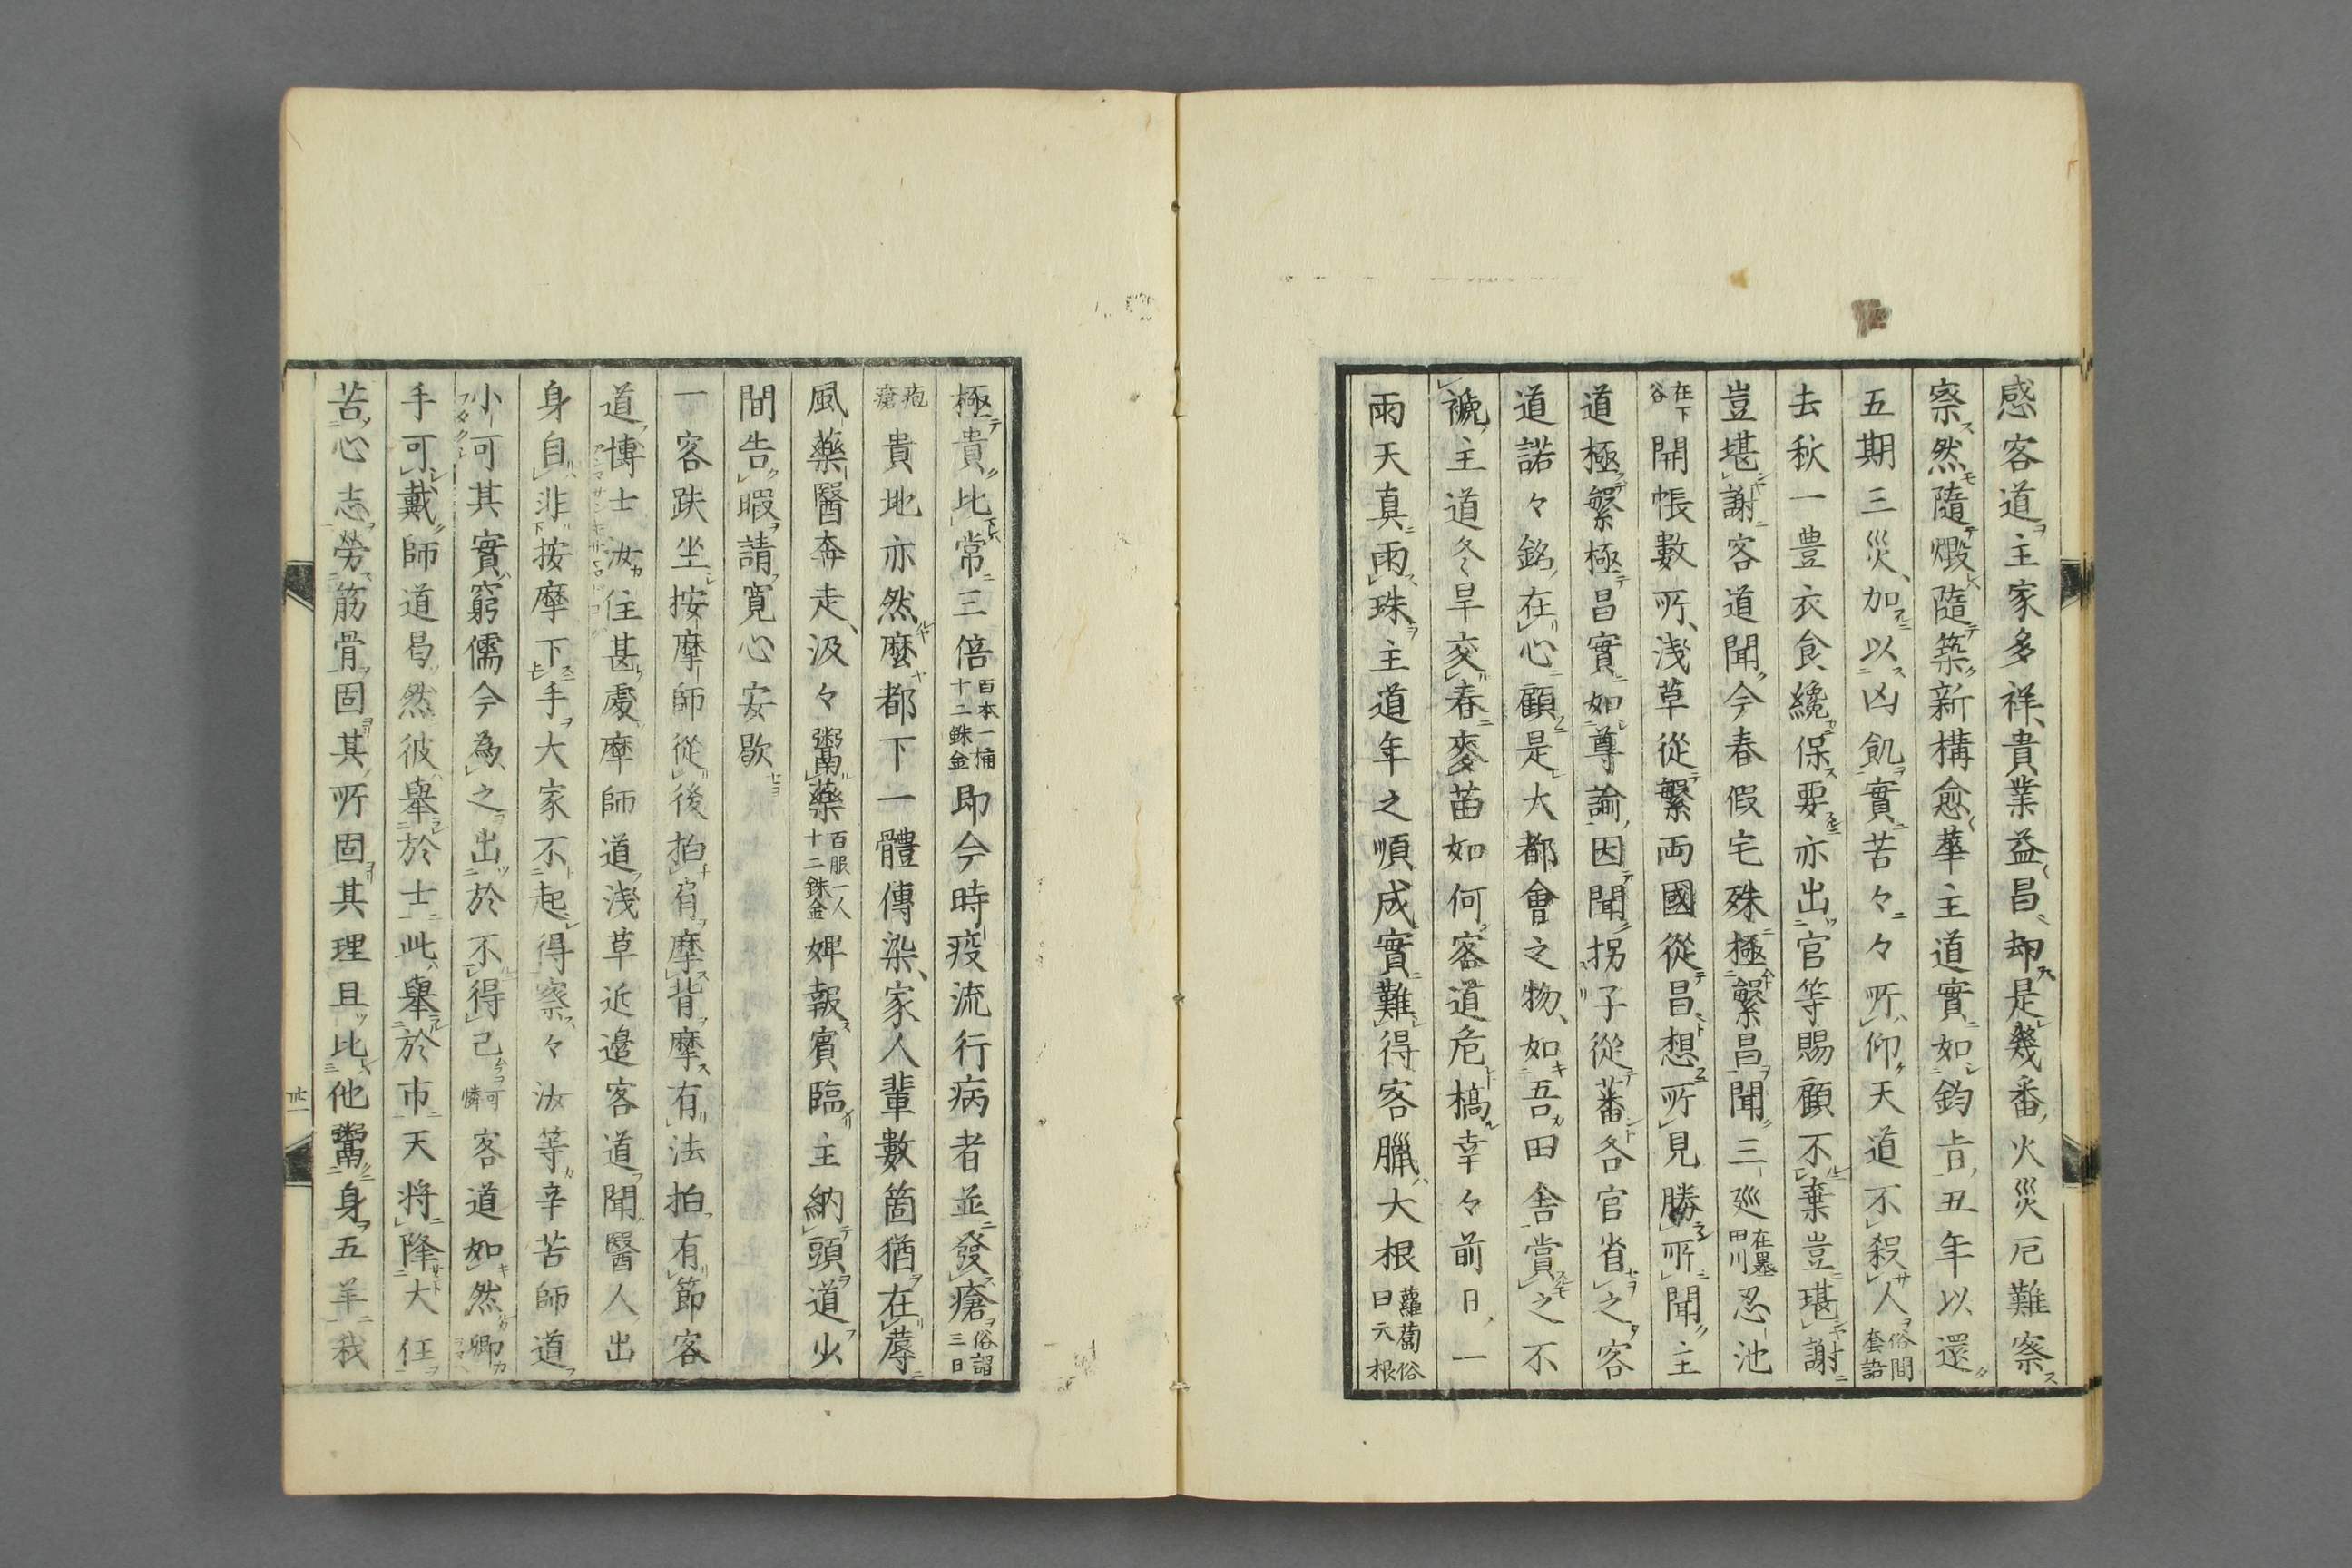 感客道主家多祥貴業益昌却是幾番火災厄難察
察然隨燬隨築新構愈華主道實如鈞旨丑年以還
五期三災加以凶飢實苦々々所仰天道不殺人俗間套語
去秋一豊衣食纔保要亦出官等賜顧不棄豈堪謝
豈堪謝客道聞今春假宅殊極繁昌聞三廵在墨田川忍池
在下谷開帳數所淺草從繁両國從昌想所見勝所聞主
道極繁極昌實如尊諭因聞拐子從蕃各官省之客
道諾々銘在心顧是大都會之物如吾田舎賞之不
褫主道冬旱交春麥苗如何客道危槁幸々前日一
雨天真雨珠主道年之順成實難得客臘大根蘿蔔俗曰大根
極貴比常三倍百本一桶十二銖金即今時疫流行病者並發瘡俗謂三日
疱瘡貴地亦然麼都下一體傳染家人輩數箇猶在蓐
風藥醫奔走汲々鬻藥百服一人十二銖金婢報賓臨主納頭道少
間告暇請寬心安歇
一客趺坐按摩師從後拍肩摩背摩有法拍有節客
道博士汝住甚處摩師道淺草近邉客道聞醫人出
身自非按摩下手大家不起得察々汝等辛苦師道
小可其實窮儒今為之出於不得已可憐客道如然卿
手可戴師道曷然彼舉於士此舉於市天将降大任
苦心志勞筋骨固其所固其理且比他鬻身五羊我